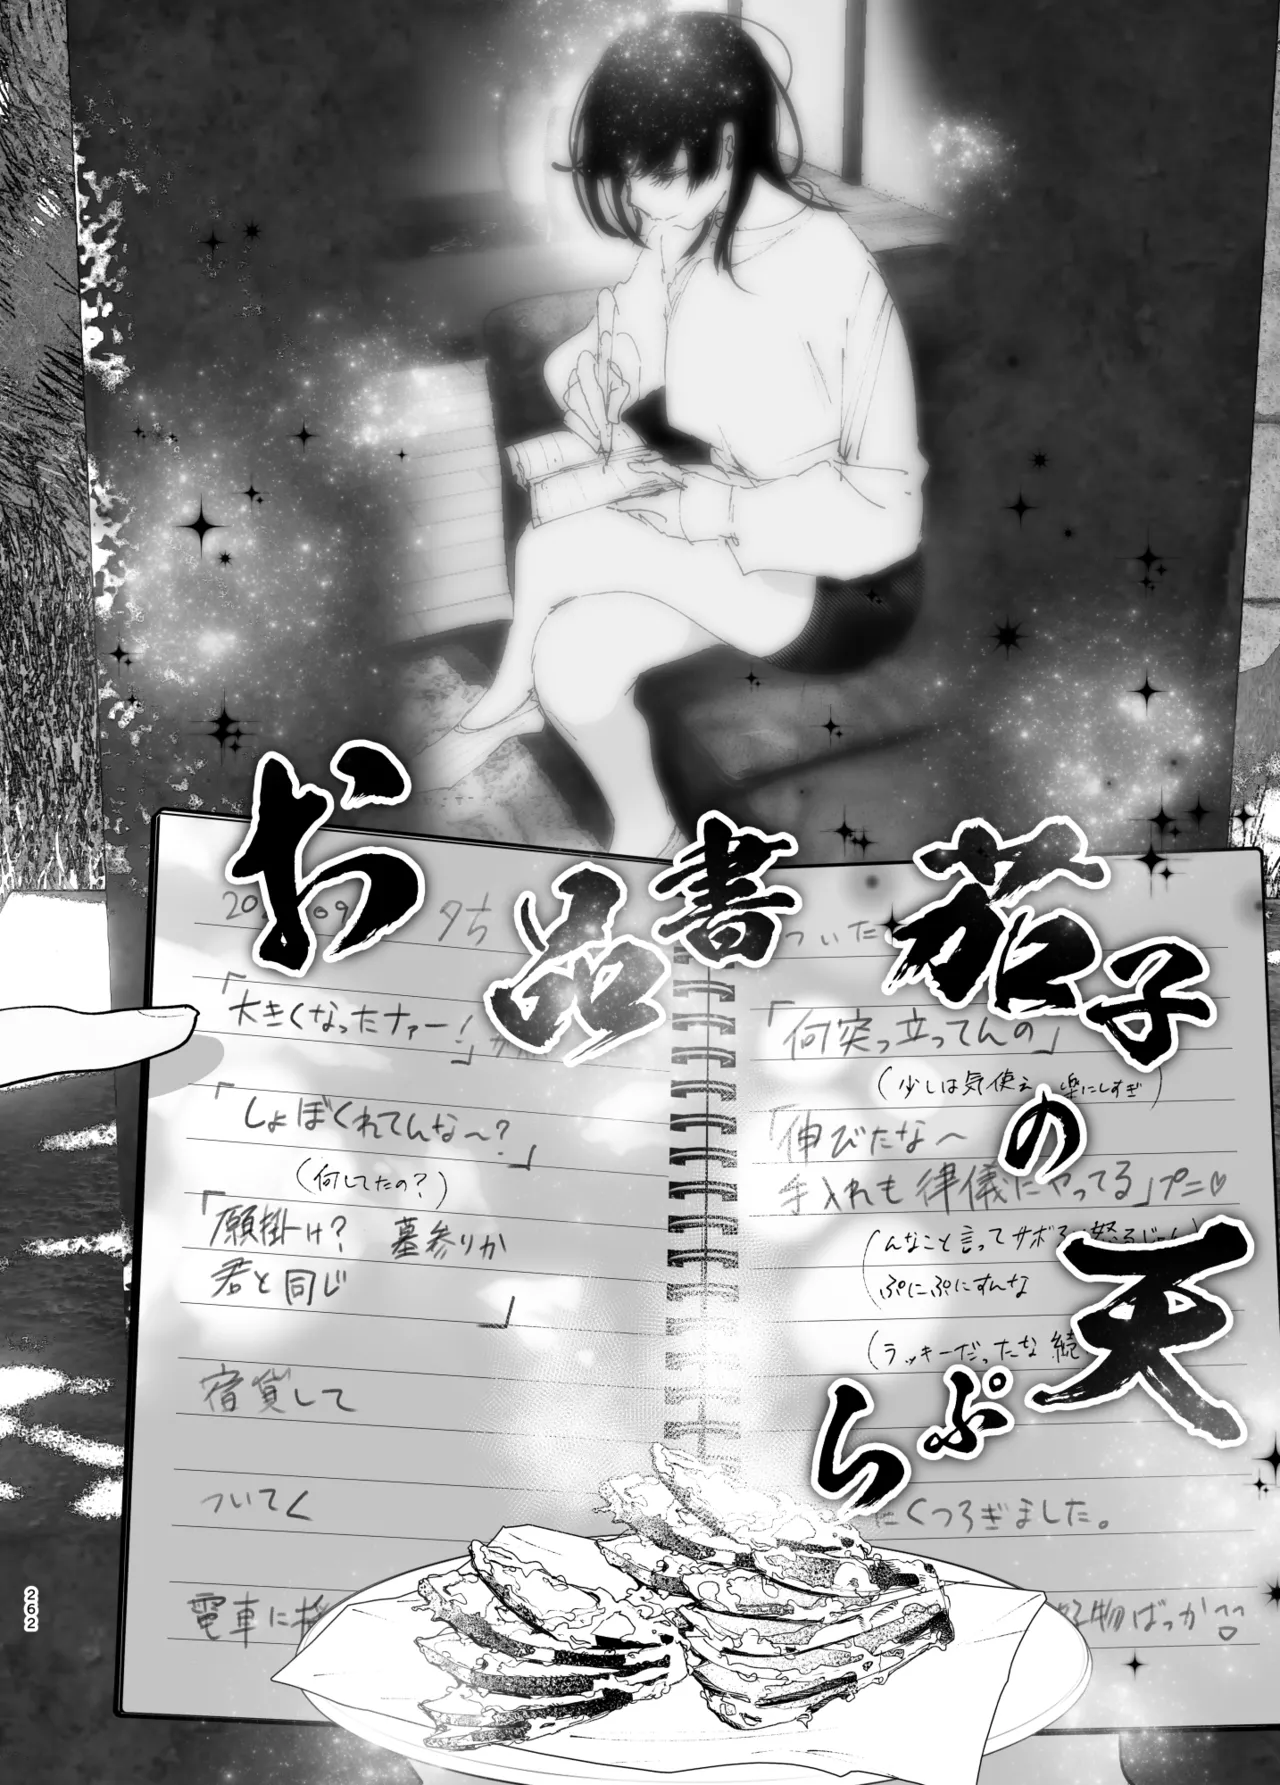 お品書
茄子の
天ぷら
夕ち
「大きくなったナァー!」
「しょぼくれてんな〜?」
(何してたの?)
「願掛け? 墓参りか
君と同じ 」
宿貸して
ついてく
電車に
ついた
「何突っ立ってんの」
(少しは気使え 楽にしすぎ)
「伸びたな〜
手入れも律儀にやってる」プニ♡
(んなこと言ってサボ
ぷにぷにすんな
(ラッキーだったな 続
にくつろぎました。
好物ばっか
262